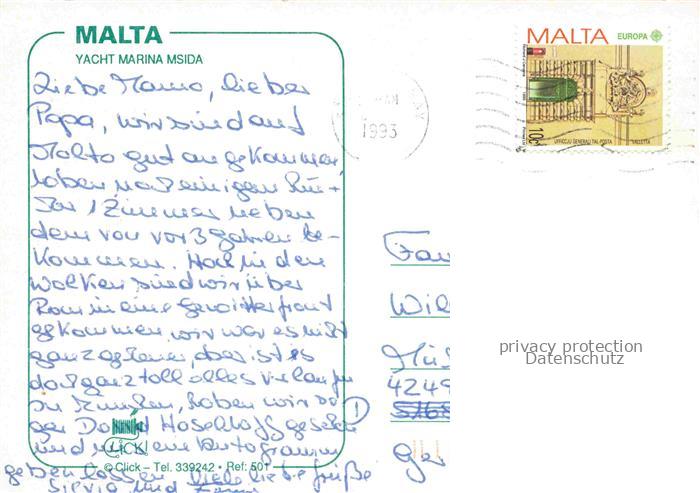 MALTA
YACHT MARINA MSIDA
Liebe Mama, lieber
Papa, wir sind auf
Malta gut angekommen
haben nach einigem
1 Zimmer neben
dem von vor 3 Jahren be-
kommen. Hoch in den
Wolken sind wir über
Rom in eine Gewitterfront
gekommen, wir war es nicht
ganz geheuer, aber ist es
doch ganz toll alles verlaufen
In München, haben wir so-
gar David Hasselhoff gesehen
und uns ein Autogramm
geben lassen Viele liebe Grüße
Silvia und
CLICK
© Click – Tel. 339242 • Ref: 501
1993
MALTA
EUROPA
10c
UFFIĊĊJU ĠENERALI TAL-POSTA
VALLETTA
Fam
Wil
4249
5168
Ger
privacy protection
Datenschutz